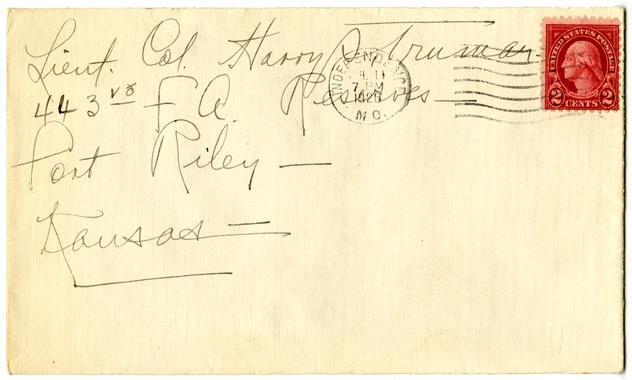 Lieut. Col. Harry S. Truman
443rd F A Reserves
Fort Riley —
Kansas —
INDEPENDENCE
JUL 11
7 PM
MO.
UNITED STATES POSTAGE
2 CENTS 2